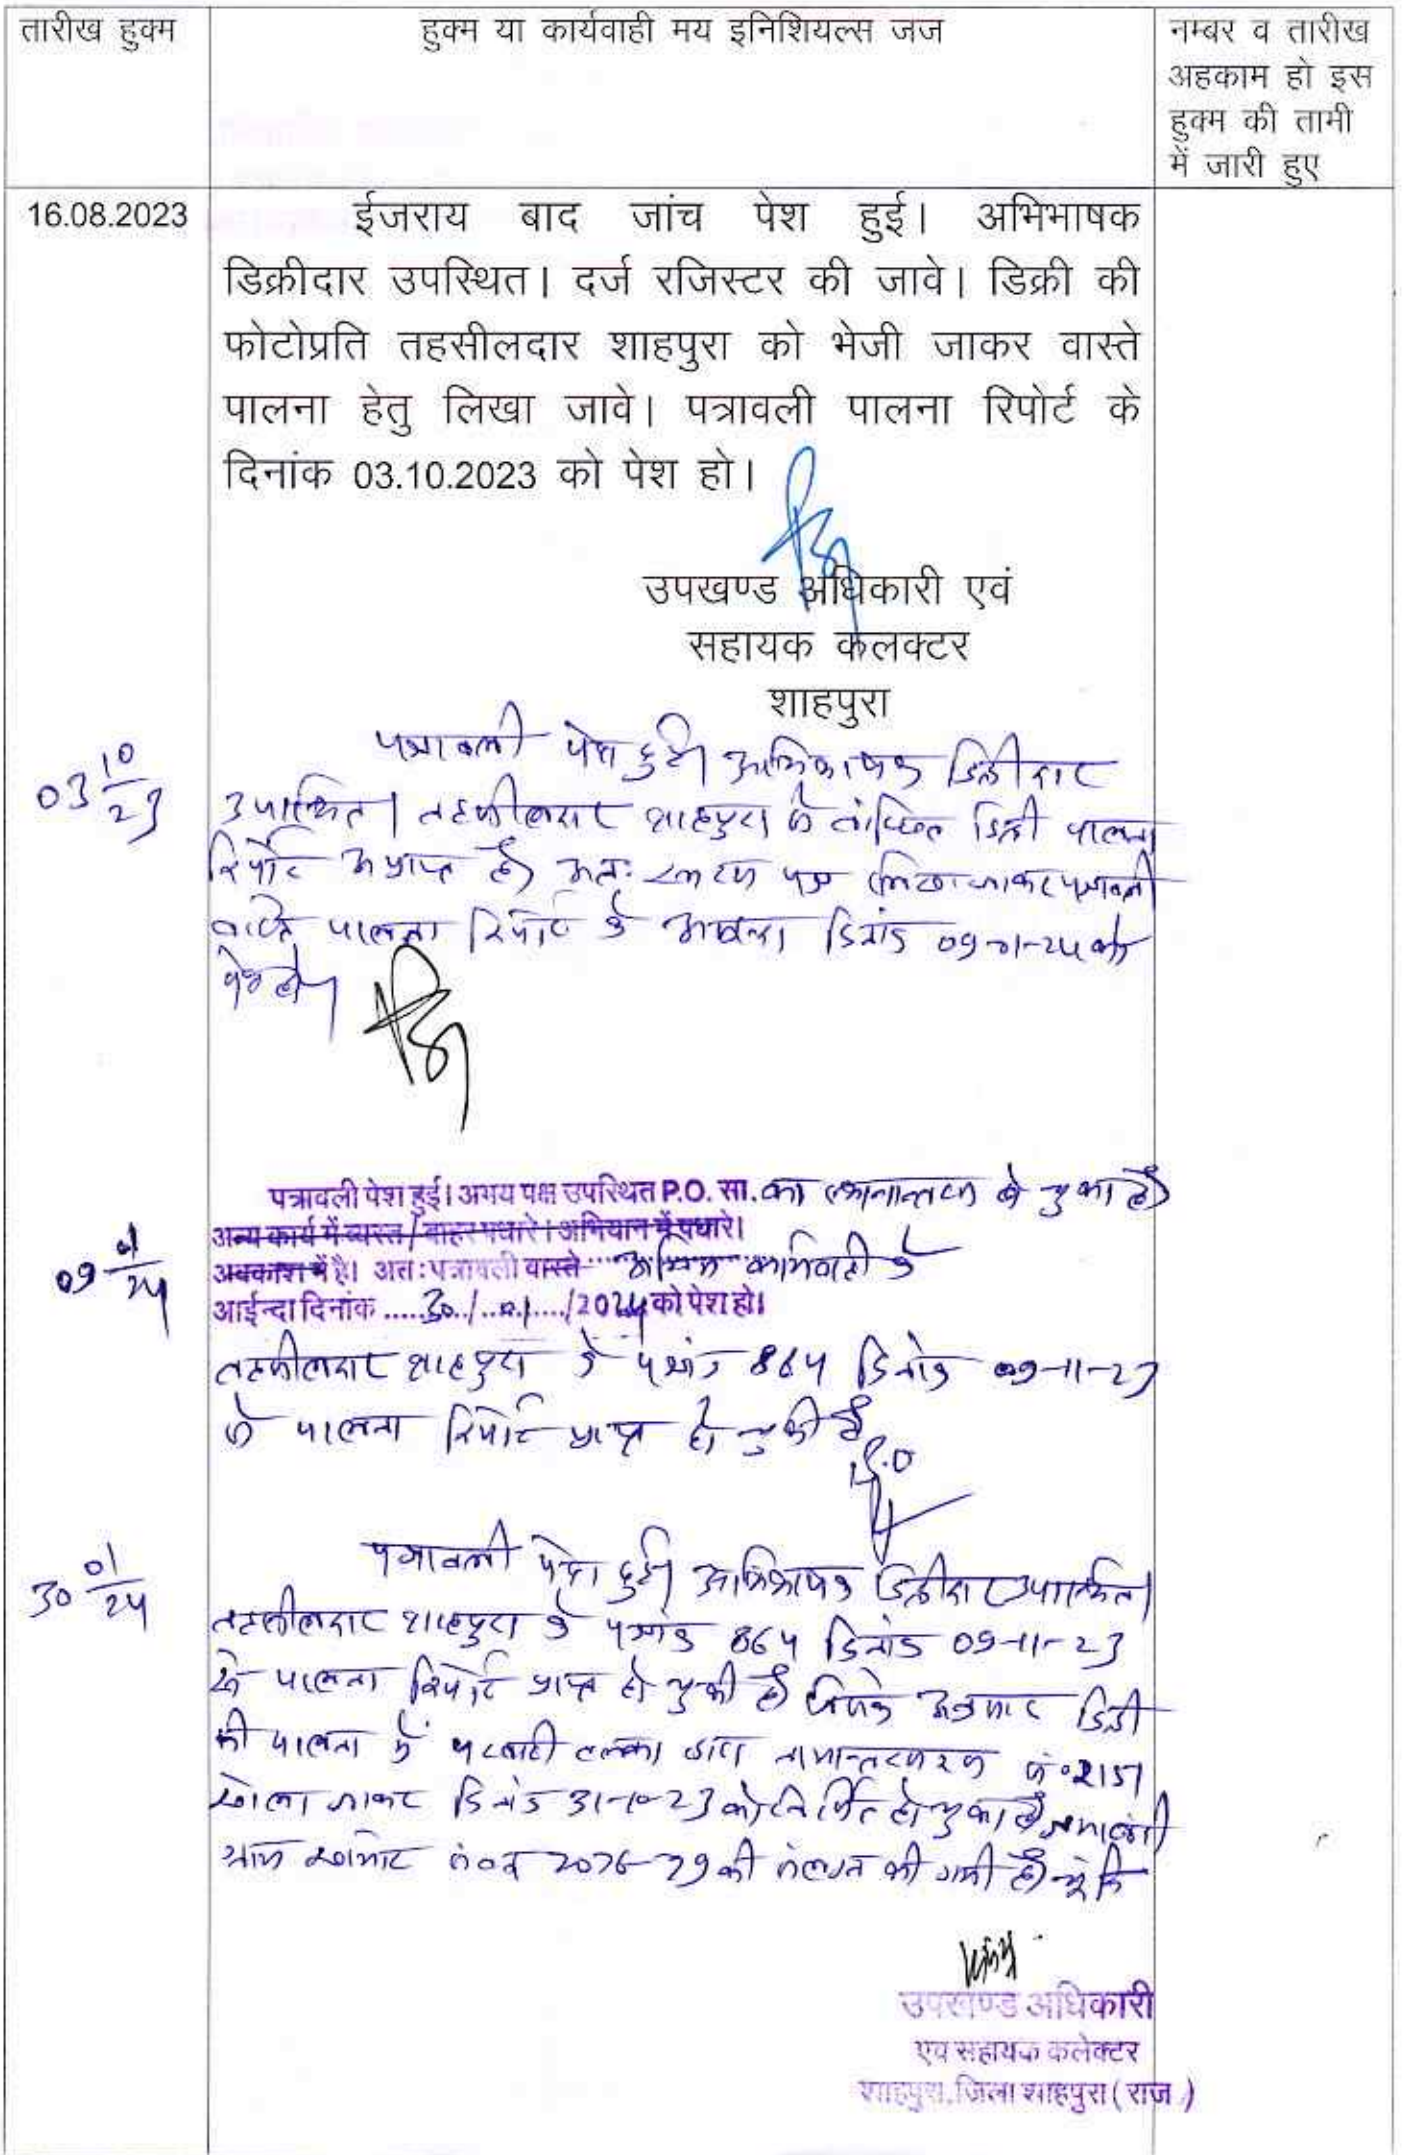 तारीख हुक्म
हुक्म या कार्यवाही मय इनिशियल्स जज
नम्बर व तारीख
अहकाम हो इस
हुक्म की तामी
में जारी हुए
16.08.2023
ईजराय बाद जांच पेश हुई। अभिभाषक
डिक्रीदार उपस्थित। दर्ज रजिस्टर की जावे। डिक्री की
फोटोप्रति तहसीलदार शाहपुरा को भेजी जाकर वास्ते
पालना हेतु लिखा जावे। पत्रावली पालना रिपोर्ट के
दिनांक 03.10.2023 को पेश हो।
उपखण्ड अधिकारी एवं
सहायक कलक्टर
शाहपुरा
03 10/23
पत्रावली पेश हुई। अभिभाषक डिक्रीदार
उपस्थित। तहसीलदार शाहपुरा से वांछित डिक्री पालना
रिपोर्ट अप्राप्त है। अतः स्मरण पत्र लिखा जाकर पत्रावली
वास्ते पालना रिपोर्ट के आईन्दा दिनांक 09-01-24 को
पेश हो।
09 01/24
पत्रावली पेश हुई। अभय पक्ष उपस्थित P.O. सा. का स्थानान्तरण हो चुका है।
अन्य कार्य में व्यस्त / बाहर पधारे। अभियान में पधारे।
अवकाश में है। अतः पत्रावली वास्ते अग्रिम कार्यवाही के
आईन्दा दिनांक ..... 30 / 01 / 2024 को पेश हो।
तहसीलदार शाहपुरा के पत्रांक 864 दिनांक 09-11-23
से पालना रिपोर्ट प्राप्त हो चुकी है
30 01/24
पत्रावली पेश हुई। अभिभाषक डिक्रीदार उपस्थित।
तहसीलदार शाहपुरा के पत्रांक 864 दिनांक 09-11-23
से पालना रिपोर्ट प्राप्त हो चुकी है जिसके अनुसार डिक्री
की पालना में पटवारी हल्का द्वारा नामान्तरकरण सं० 2151
खोला जाकर दिनांक 31-10-23 को निर्णित हो चुका है जमाबंदी
ग्राम संवत 2076-79 की संलग्न की गयी है। चूंकि
उपखण्ड अधिकारी
एवं सहायक कलेक्टर
शाहपुरा, जिला शाहपुरा (राज.)